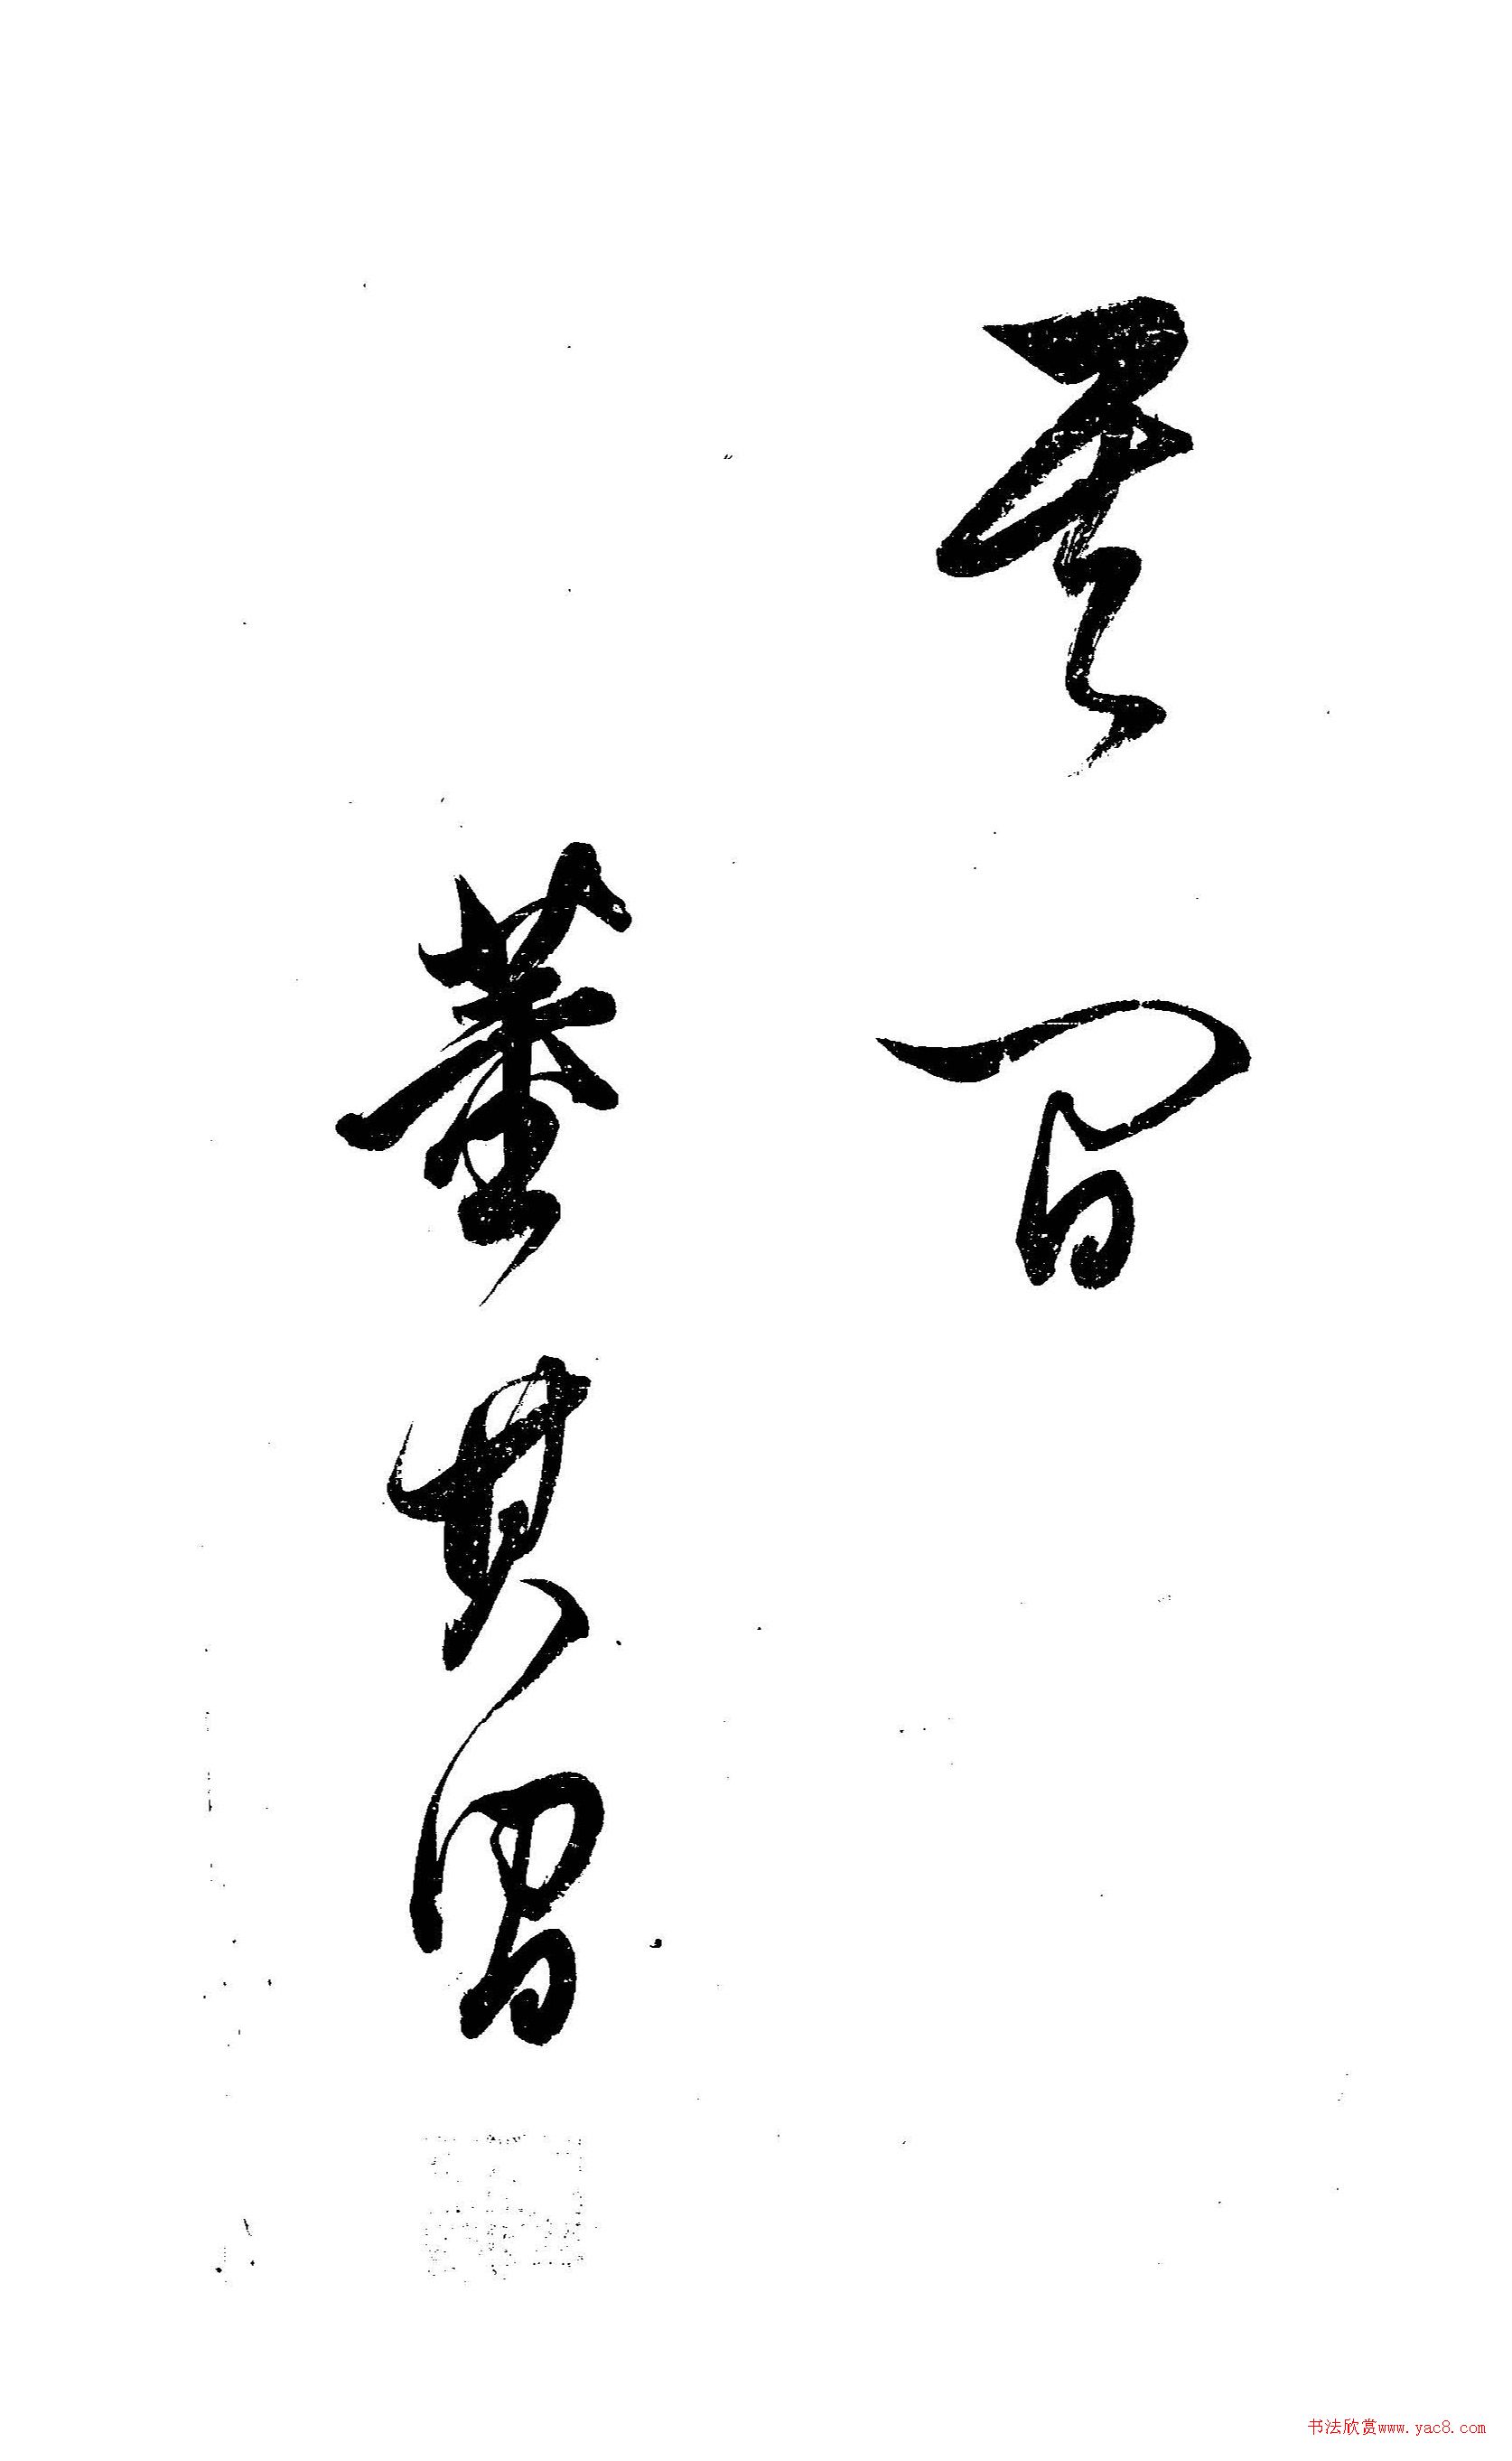 間
董其昌
书法欣赏www.yac8.com